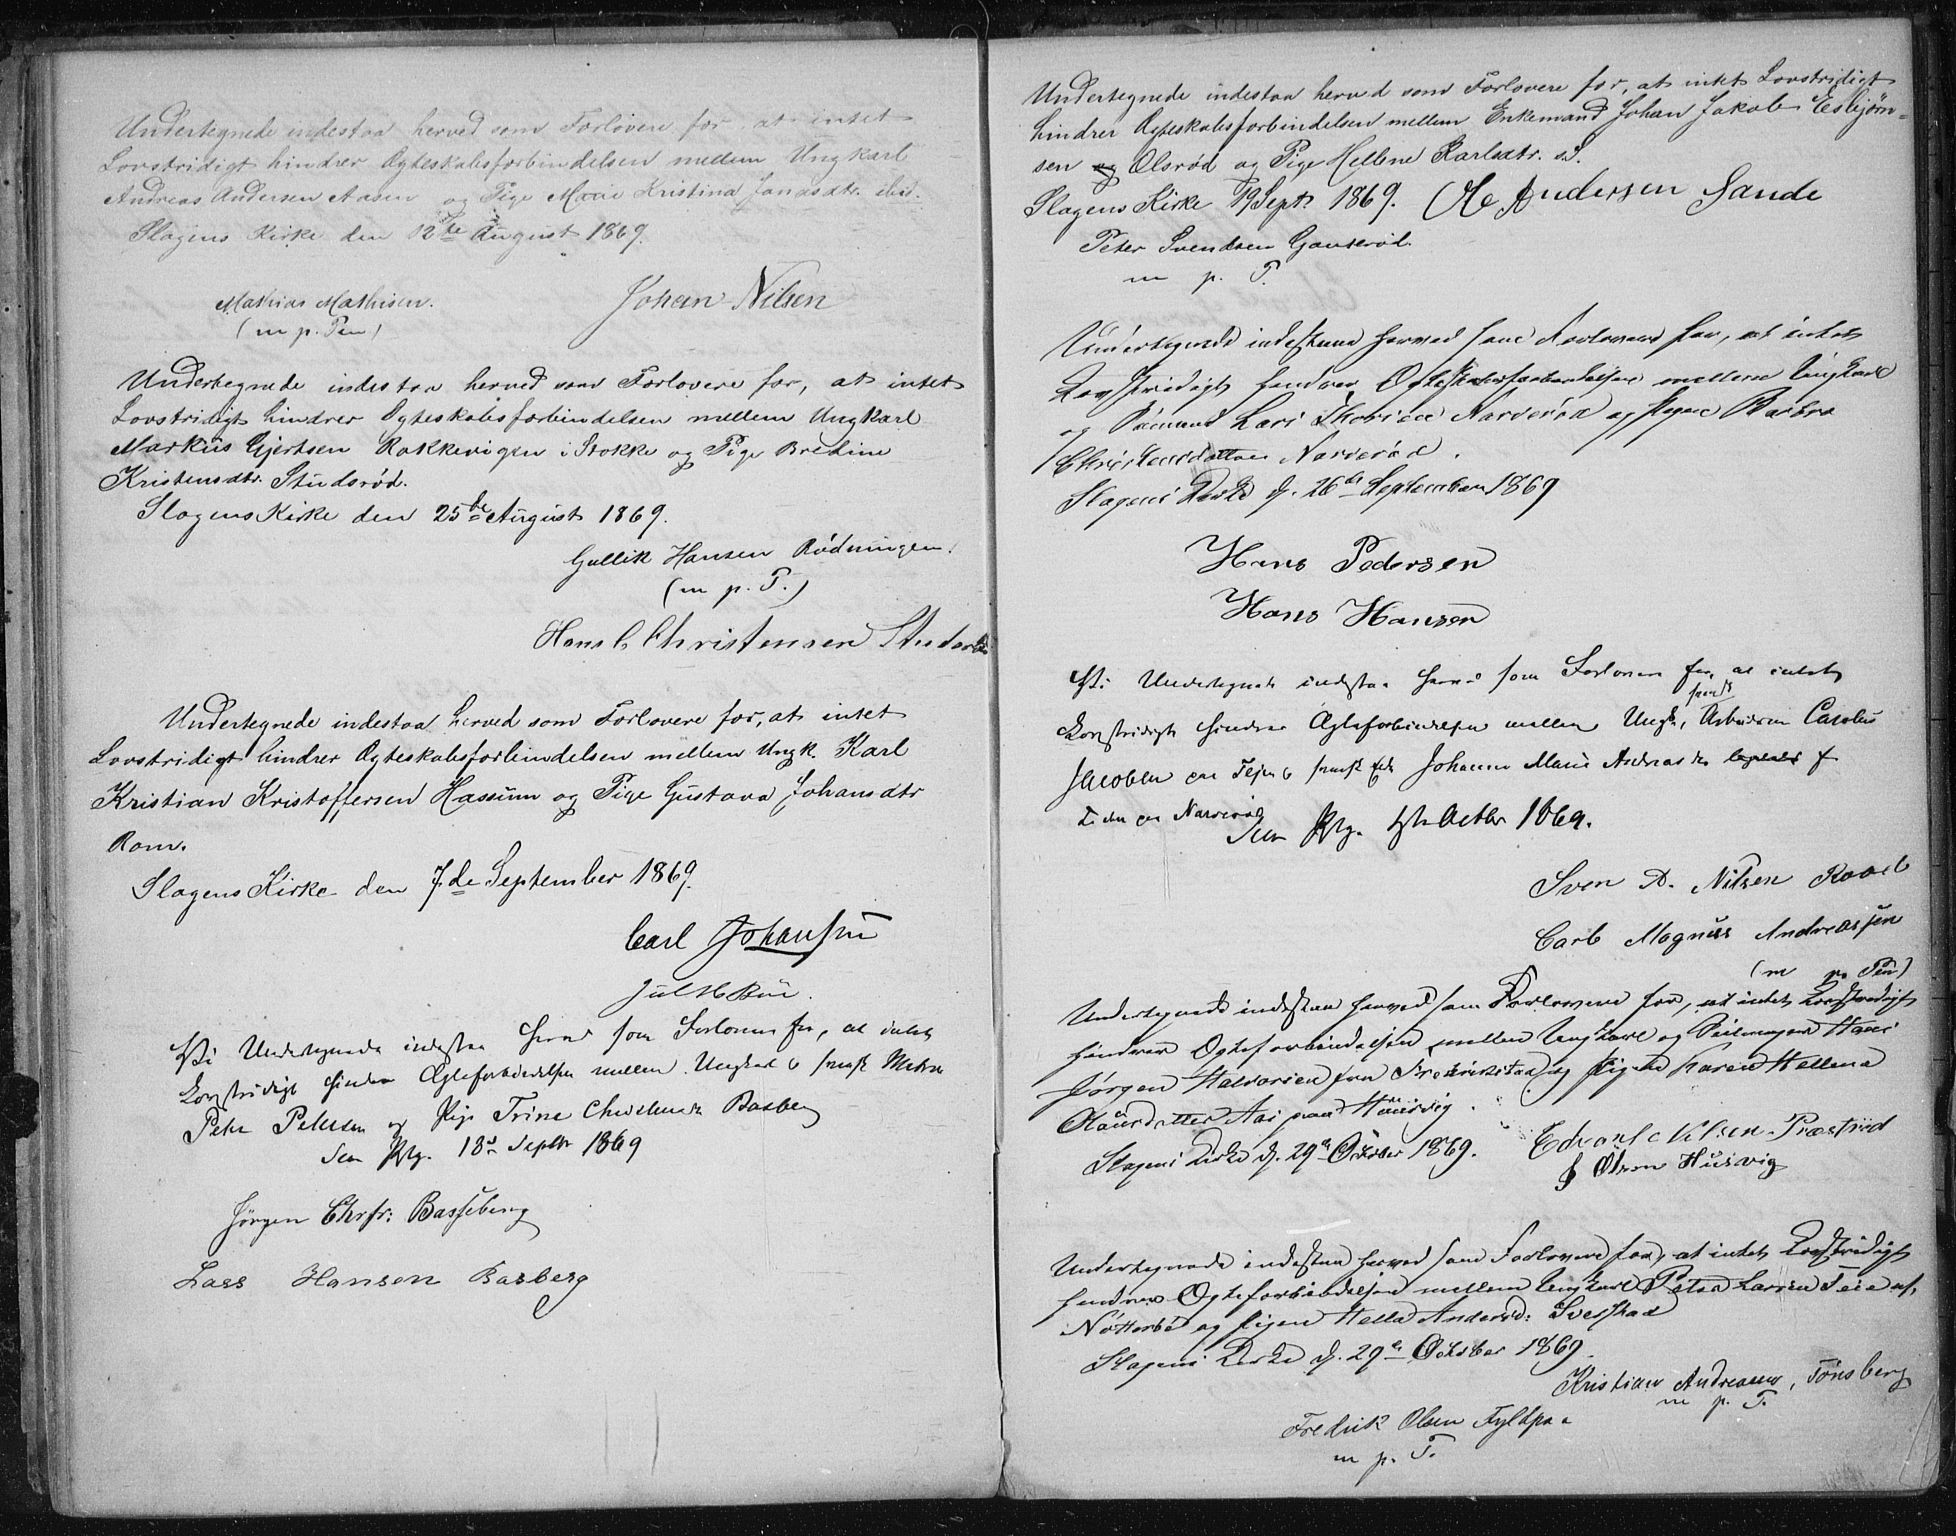 Undertegnede indestaa herved som Forlovere for at intet
Lovstridigt hindrer Ægteskabsforbindelsen mellem Ungkarl
Andreas Andersen Aasen og Pige Marie Kristina Jonasdtr. ibid.
Slagens Kirke den 12te August 1869.
Mathias Mathisen. Johan Nilsen
(m p. Pen)
Undertegnede indestaa herved som Forlovere for, at intet
Lovstridigt hindrer Ægteskabsforbindelsen mellem Ungkarl
Markus Gjertsen Rakkevigen i Stokke og Pige Bredine
Kristensdtr. Studsrød.
Slagens Kirke den 25de August 1869.
Gullik Hansen Rødningen.
(m p. P.)
Hans C Christensen
Undertegnede indestaa herved som Forlovere for, at intet
Lovstridigt hindrer Ægteskabsforbindelsen mellem Ungk. Karl
Kristian Kristoffersen Hassum og Pige Gustava Johansdtr
Rom.
Slagens Kirke den 7.de September 1869.
Carl Johansen
Jul
Vi Undertegnede indestaa herved som Forlovere for, at intet
Lovstridigt hindrer Ægteforbindelsen mellem Ungkarl
Peter Petersen og Pige Trine Basberg
18d Septbr 1869
Jørgen Chrfr: Basseberg
Lars Hansen Basberg
Undertegnede indestaa herved som Forlovere for, at intet Lovstridigt
hindrer Ægteskabsforbindelsen mellem Enkemand Johan Jakob Esbjørn-
sen og Olsrød og Pige Hellene Karlsdtr. s.S.
Slagens Kirke 19 Sept. 1869. Andersen Sande
Peter Svendsen Gauterød.
m p. P.
Undertegnede indestaaer herved som Forlovere for, at intet
Lovstridigt hindrer Ægteskabsforbindelsen mellem Ungkarl
og Sømand Lars Narverød og Pigen Barbra
Christensdatter Narverød.
Slagens Kirke d. 26de September 1869
Hans Pedersen
Hans Hansen
Vi Undertegnede indestaa herved som Forlovere for, at intet
Lovstridigt hindrer Ægteforbindelsen mellem Ungk. Arbeider Carolus
Jacobsen og Johanne Marie
Narverød
Octbr 1869.
Sven A. Nilsen
Carl Magnus Andreassen
(m p. Pen)
Undertegnede indestaa herved som Forlovere for, at intet Lovstridigt
hindrer Ægteforbindelsen mellem Ungkarl og Seilmager Hans
Jørgen Halvorsen fra Fredrikstad og Pigen Karen Hellena
Olausdatter Aas paa Huusvig.
Slagens Kirke d. 29de Oktober 1869. Edvard Nilsen Præstrød
Olsen Husvig
Undertegnede indestaa herved som Forlovere for, at intet Lovstridigt
hindrer Ægteforbindelsen mellem Ungkarl Petter Larsen Teie af
Nøtterø og Pigen Hella Andersd:
Slagens Kirke d. 29de Oktober 1869.
Kristian Andreasen, Tønsberg
m p. P.
Fredrik Olsen Fyldpaa
m p. P.